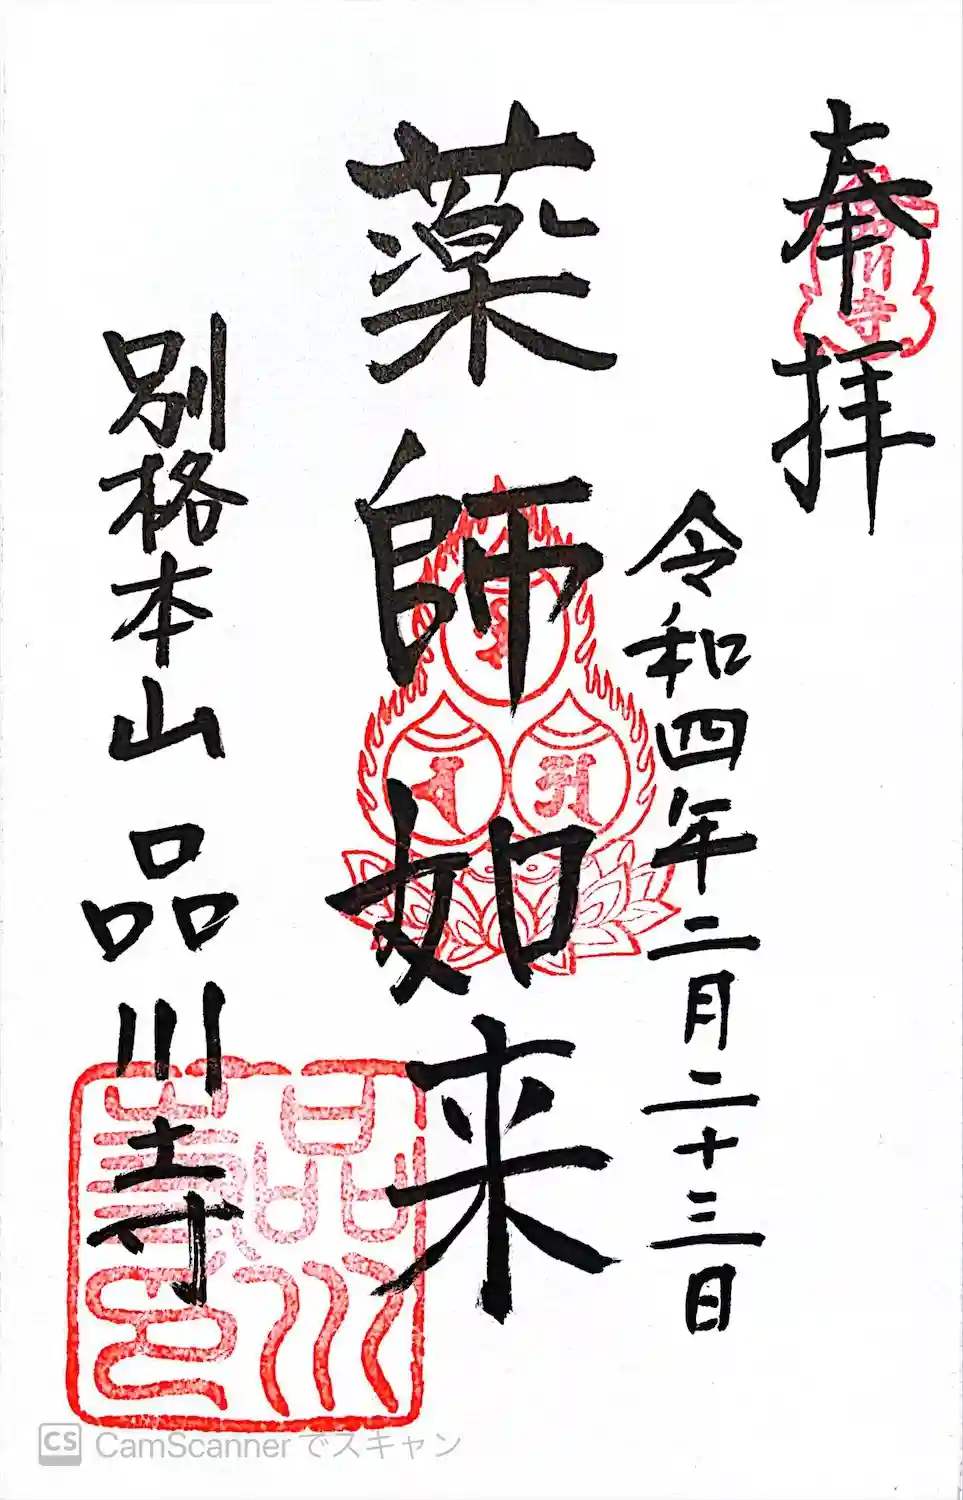 奉拝
品川寺
令和四年二月二十三日
薬師如来
別格本山 品川寺
CS CamScannerでスキャン